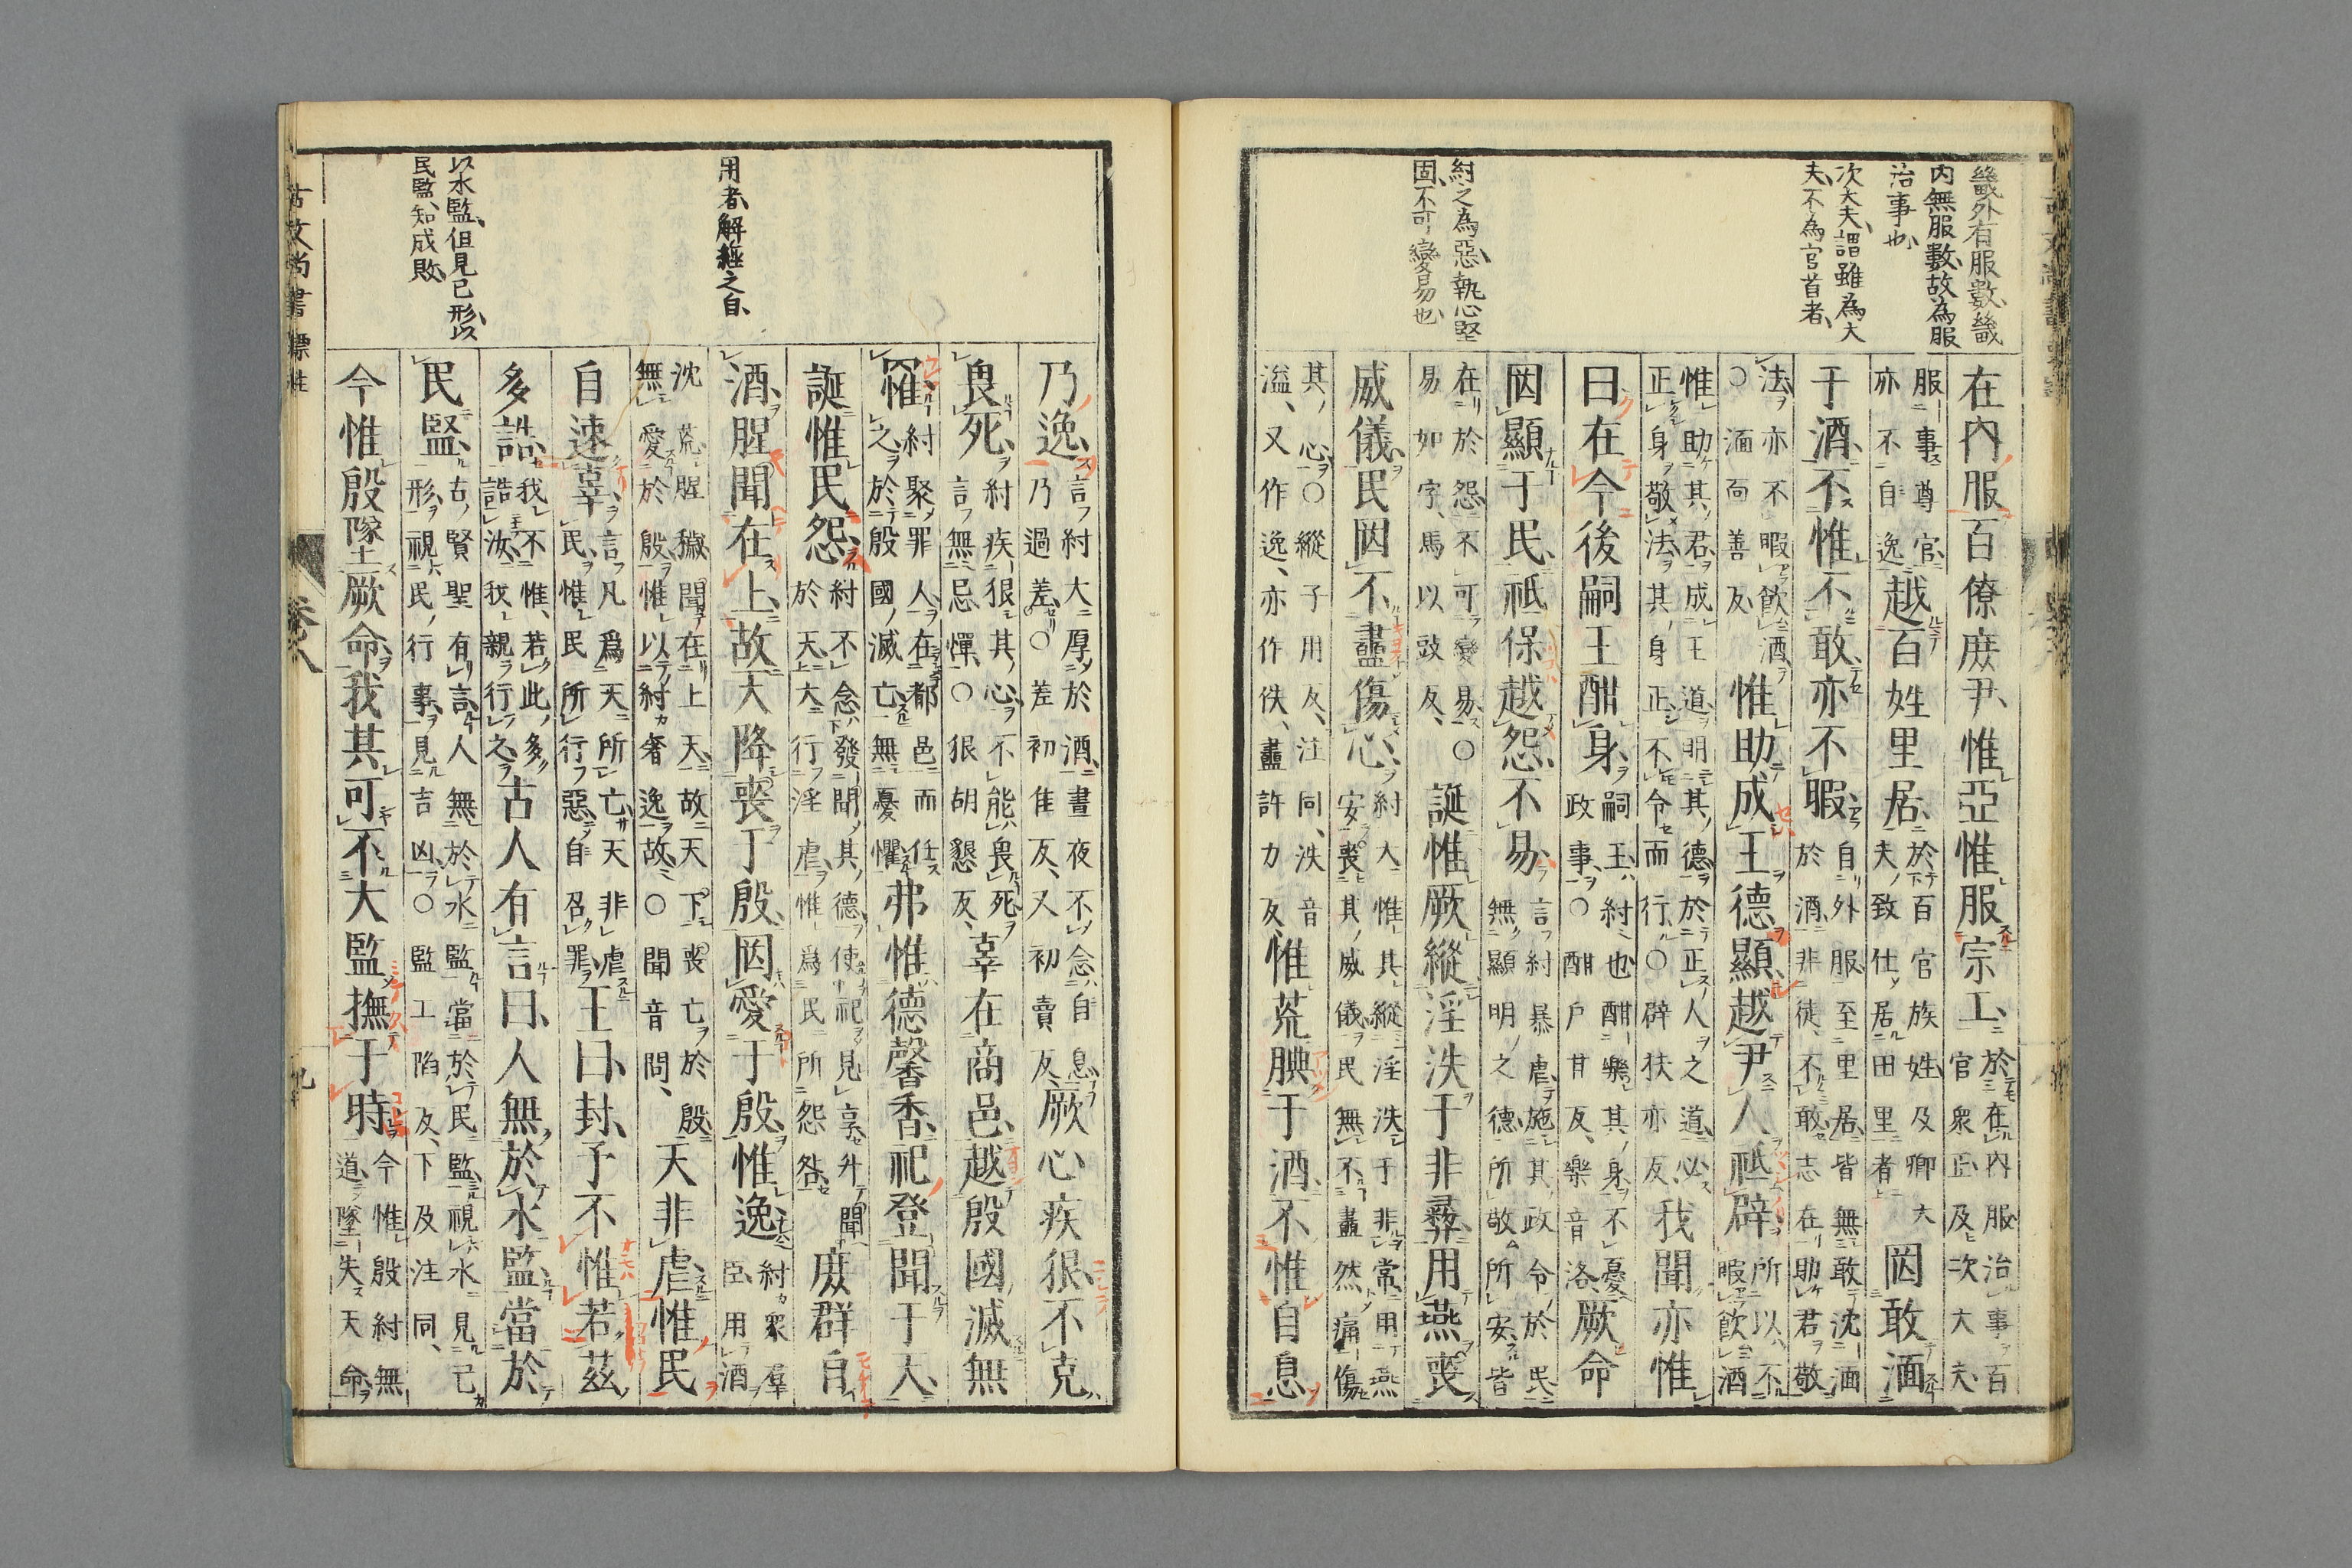 畿外有服數、畿
内無服數、故為服
治事也、
次大夫、謂雖為大
夫、不為官首者、
紂之為惡、執心堅
固、不可變易也、
在內服百僚庶尹、惟亞惟服宗工、
於在內服治事百
官衆正及次大夫、
服事尊官
亦不自逸
越百姓里居、
於百官族姓及卿大
夫致仕居田里者
罔敢湎
于酒、不惟不敢、亦不暇、
自外服至里居皆無敢沈湎
於酒、非徒不敢志在助君敬
法、亦不暇飲酒
○湎面善反
惟助成王德顯、越尹人祗辟、
所以不
暇飲酒
惟助其君成王道明其德於正人之道必
正身敬法其身正不令而行○辟扶亦反
我聞亦惟
曰在今後嗣王酣身、
嗣王紂也酣樂其身不憂
政事○酣戶甘反樂音洛
厥命
罔顯于民、祗保越怨、不易、
言紂暴虐施其政令於民
無顯明之德所敬所安皆
在於怨不可變易○
易如字、馬以豉反、
誕惟厥縱淫泆于非彝、用燕喪
威儀、民罔不衋傷心、
紂大惟其縱淫泆于非常用燕
安喪其威儀民無不衋然痛傷
其心○縱子用反、注同、泆音
溢、又作逸、亦作佚、衋許力反、
惟荒腆于酒、不惟自息
用者、解經之自、
以水監、但見已形、以
民監、知成敗、
乃逸、
言紂大厚於酒晝夜不念自息
乃過差○差初佳反、又初賣反、
厥心疾狠、不克
畏死、
紂疾狠其心不能畏死
言無忌憚、○狠胡懇反、
辜在商邑、越殷國滅無
罹、
紂聚罪人在都邑而任
之於殷國滅亡無憂懼
弗惟德馨香、祀登聞于天、
誕惟民怨、
紂不念發聞其德使祀見享升聞
於天大行淫虐惟爲民所怨咎
庶群自
酒、腥聞在上、故天降喪于殷、罔愛于殷、惟逸、
紂衆羣
臣用酒
沈荒腥穢聞在上天、故天下喪亡於殷
無愛於殷惟以紂奢逸故、○聞音問、
天非虐、惟民
自速辜、
言凡爲天所亡天非虐
民惟民所行惡自召罪
王曰、封、予不惟若茲
多誥、
我不惟、若此多
誥汝、我親行之
古人有言曰、人無於水監、當於
民監、
古賢聖有言人無於水監當於民監視水見已
形視民行事見吉凶○監工陷反、下及注同、
今惟殷墜厥命、我其可不大監撫于時、
今惟殷紂無
道墜失天命
古文尚書
卷八
九